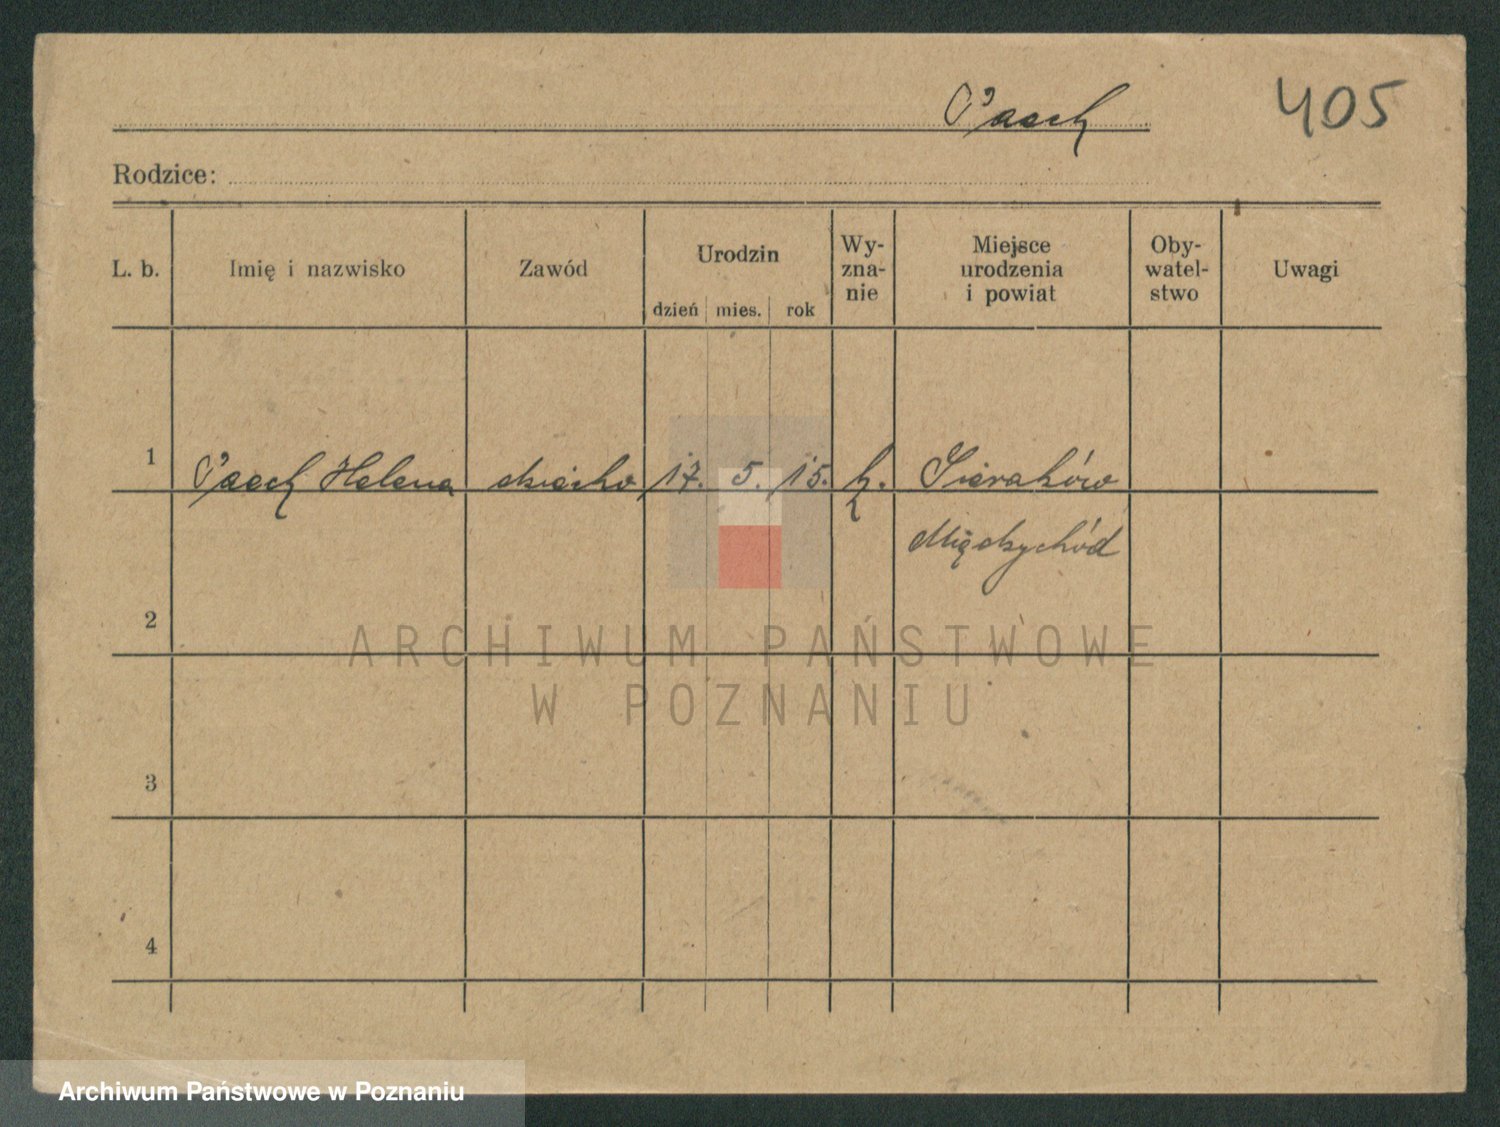 Paech
405
Rodzice:
L. b.
Imię i nazwisko
Zawód
Urodzin
dzień mies. rok
Wy-
zna-
nie
Miejsce
urodzenia
i powiat
Oby-
watel-
stwo
Uwagi
1 Paech Helena dziecko 17. 5. 15. k. Sieraków
Międzychód
2
3
4
ARCHIWUM PAŃSTWOWE
W POZNANIU
Archiwum Państwowe w Poznaniu